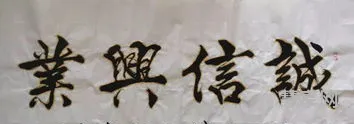 誠信興業